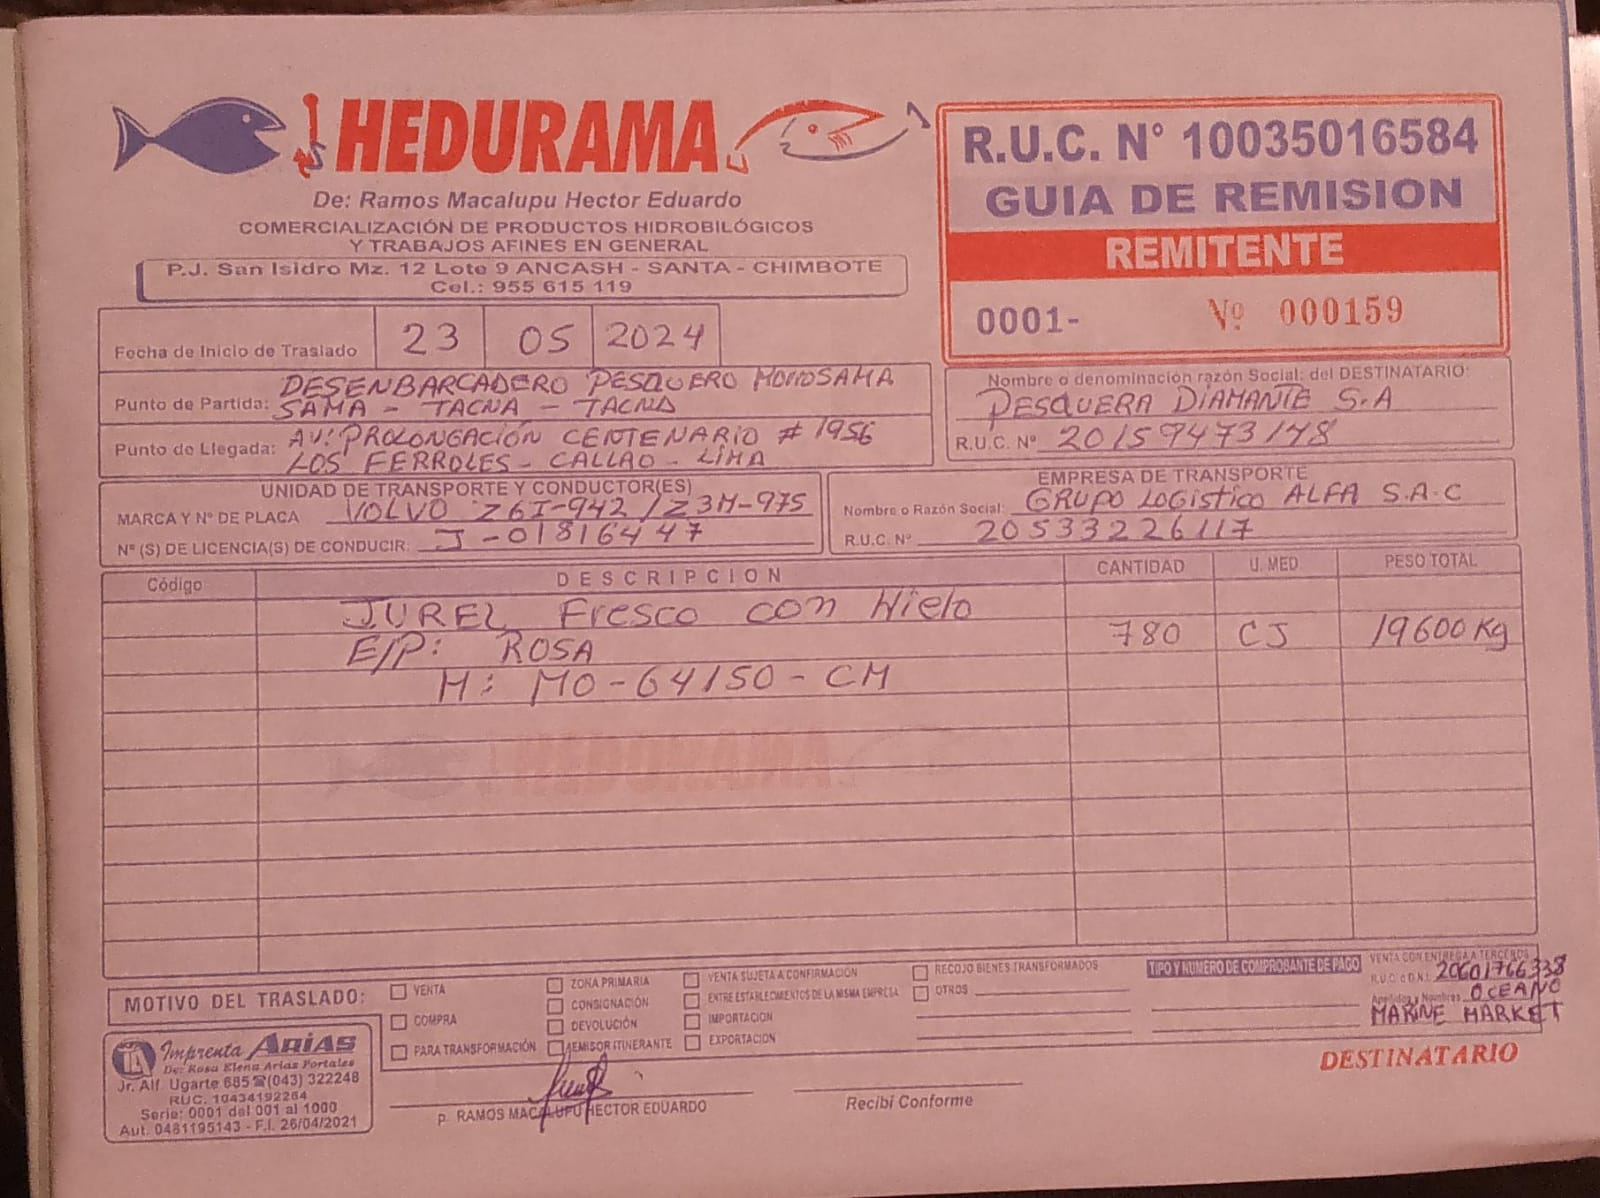 HEDURAMA
De: Ramos Macalupu Hector Eduardo
COMERCIALIZACIÓN DE PRODUCTOS HIDROBILÓGICOS
Y TRABAJOS AFINES EN GENERAL
P.J. San Isidro Mz. 12 Lote 9 ANCASH - SANTA - CHIMBOTE
Cel.: 955 615 119
R.U.C. N° 10035016584
GUIA DE REMISION
REMITENTE
0001- Nº 000159
Fecha de Inicio de Traslado 23 05 2024
Punto de Partida: DESENBARCADERO PESQUERO MORROSAMA
SAMA - TACNA - TACNA
Punto de Llegada: AV: PROLONGACIÓN CENTENARIO # 1956
LOS FERROLES - CALLAO - LIMA
Nombre o denominación razón Social: del DESTINATARIO:
PESQUERA DIAMANTE S.A
R.U.C. Nº 20159473148
UNIDAD DE TRANSPORTE Y CONDUCTOR(ES)
MARCA Y Nº DE PLACA VOLVO Z6I-942 / Z3M-975
Nº (S) DE LICENCIA(S) DE CONDUCIR: J-01816447
EMPRESA DE TRANSPORTE
Nombre o Razón Social: GRUPO LOGISTICO ALFA S.A.C
R.U.C. Nº 20533226117
Código DESCRIPCION CANTIDAD U. MED PESO TOTAL
JUREL Fresco con Hielo
E/P: ROSA 780 CJ 19600 Kg
M: MO-64150-CM
MOTIVO DEL TRASLADO:
VENTA
COMPRA
PARA TRANSFORMACIÓN
ZONA PRIMARIA
CONSIGNACIÓN
DEVOLUCIÓN
EMISOR ITINERANTE
VENTA SUJETA A CONFIRMACIÓN
ENTRE ESTABLECIMIENTOS DE LA MISMA EMPRESA
IMPORTACION
EXPORTACION
RECOJO BIENES TRANSFORMADOS
OTROS
TIPO Y NUMERO DE COMPROBANTE DE PAGO
VENTA CON ENTREGA A TERCEROS
R.U.C. o D.N.I. 20601766338
Apellidos y Nombres OCEANO
MARINE MARKET
DESTINATARIO
Imprenta ARIAS
De: Rosa Elena Arias Portales
Jr. Alf. Ugarte 685 ☎(043) 322248
RUC. 10434192264
Serie: 0001 del 001 al 1000
Aut. 0481195143 - F.I. 26/04/2021
p. RAMOS MACALUPU HECTOR EDUARDO
Recibí Conforme